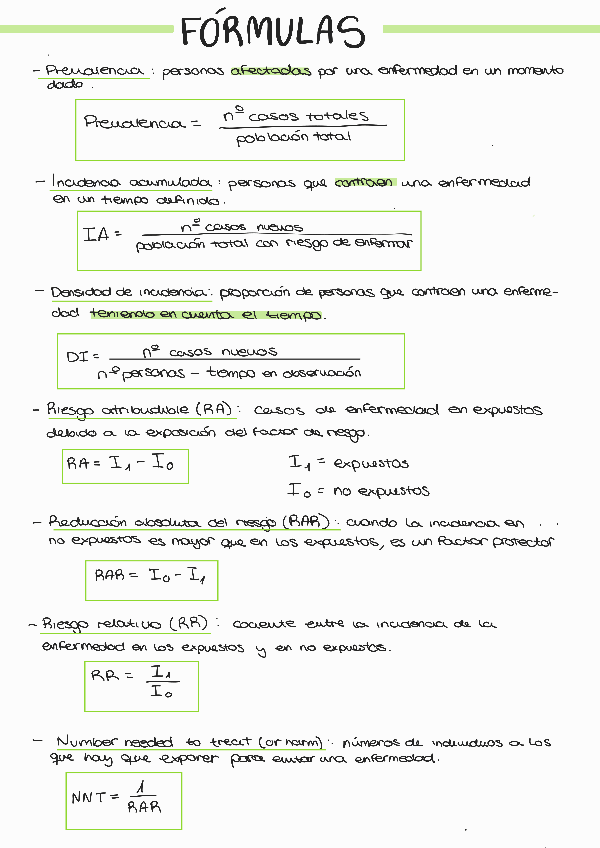 FÓRMULAS
- Prevalencia : personas afectadas por una enfermedad en un momento
dado .
Prevalencia = nº casos totales / población total
- Incidencia acumulada : personas que contraen una enfermedad
en un tiempo definido.
IA = nº casos nuevos / población total con riesgo de enfermar
- Densidad de incidencia : proporción de personas que contraen una enferme-
dad teniendo en cuenta el tiempo.
DI = nº casos nuevos / nº personas - tiempo en observación
- Riesgo atribuible (RA) : casos de enfermedad en expuestos
debido a la exposición del factor de riesgo.
RA = I₁ - I₀
I₁ = expuestos
I₀ = no expuestos
- Reducción absoluta del riesgo (RAR) : cuando la incidencia en
no expuestos es mayor que en los expuestos, es un factor protector
RAR = I₀ - I₁
- Riesgo relativo (RR) : cociente entre la incidencia de la
enfermedad en los expuestos y en no expuestos.
RR = I₁ / I₀
- Number needed to treat (or harm) : números de individuos a los
que hay que exponer para evitar una enfermedad.
NNT = 1 / RAR